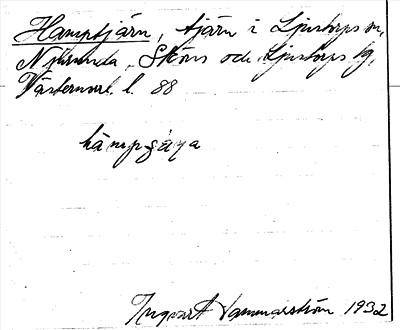 Hamptjärn, tjärn i Ljustorps sn,
Njurunda, Sköns och Ljustorps tg,
Västernorrl. l. 88
hämpgåpa
Ingvart Hammarström 1932